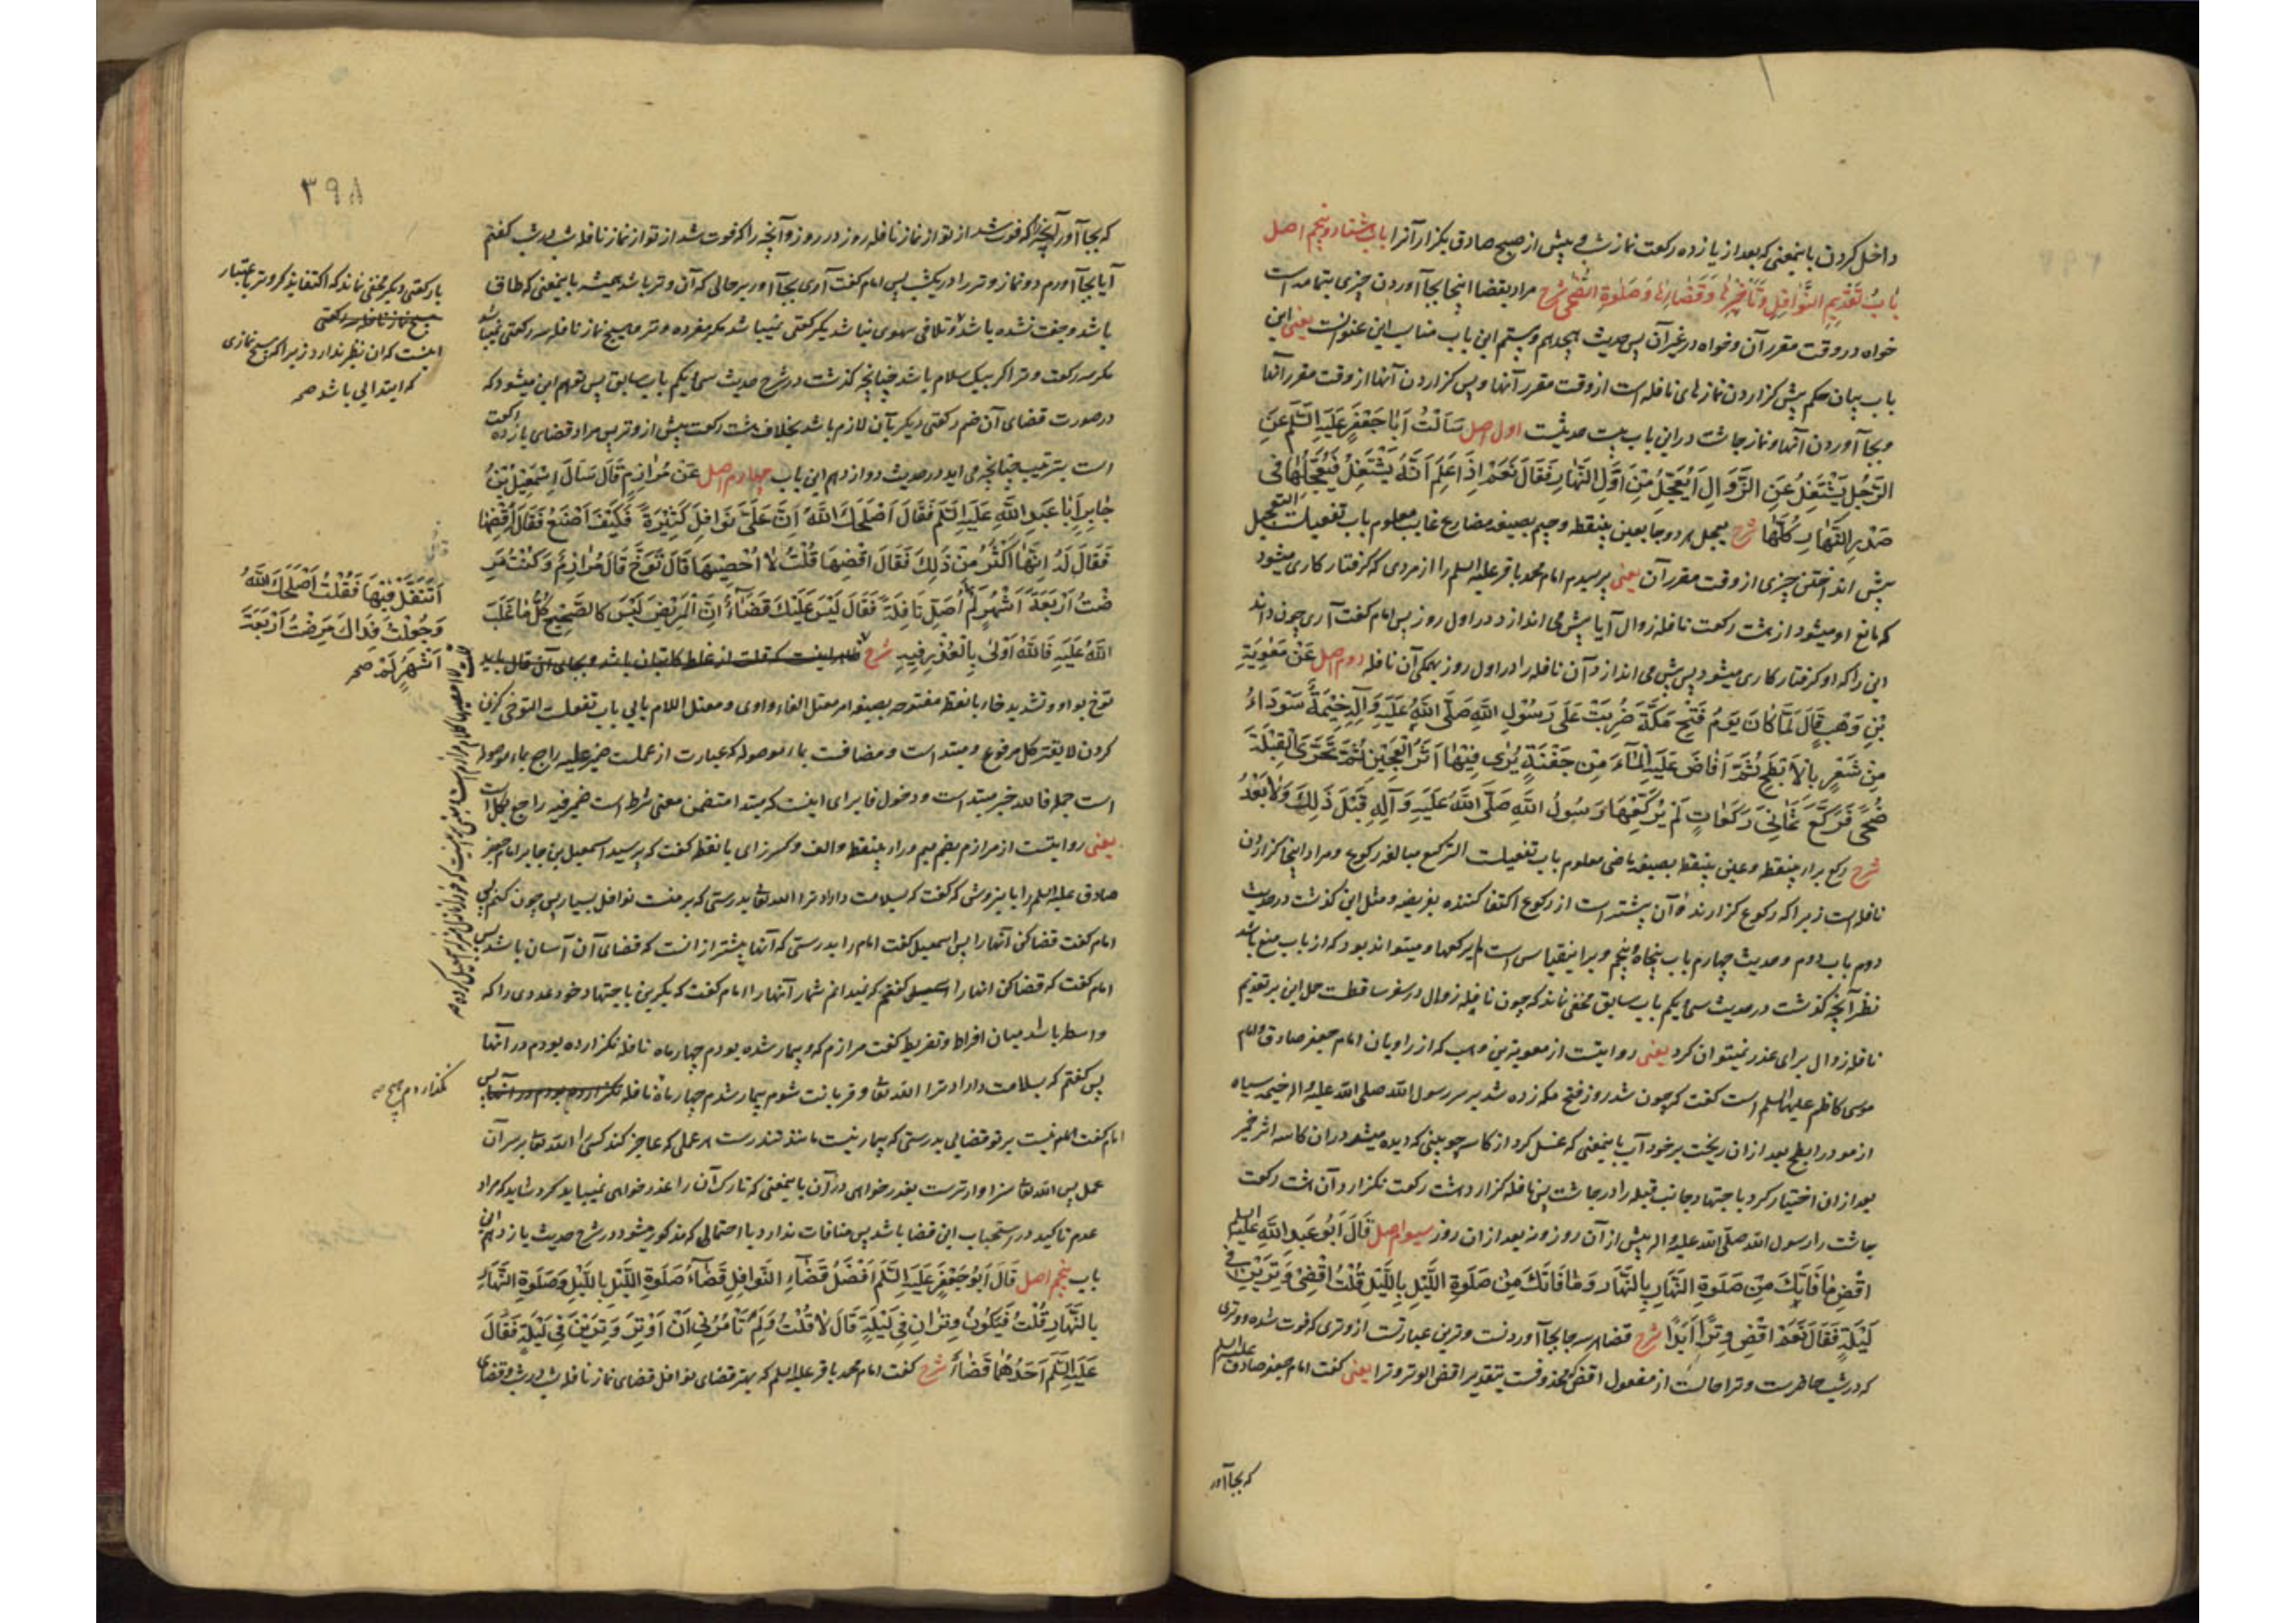 داخل کردن باینمعنی که بعد از یازده رکعت نماز شب و پیش از صبح صادق بگزار آنرا باب هشتاد و پنجم اصل
بَابُ تَقْدِیمِ النَّوَافِلِ وَتَأْخِیرِهَا وَقَضَائِهَا وَصَلَوةِ الضُّحٰی شرح مراد بقضا اینجا بجا آوردن چیزی بتمامه است
خواه در وقت مقرر آن و خواه در غیر آن پس حدیث هیجدهم و بیستم این باب مناسب این عنوانست یعنی این
باب بیان حکم پیش گزاردن نمازهای نافله است از وقت مقرر آنها و پس گزاردن آنها از وقت مقرر آنها
و بجا آوردن آنها و نماز چاشت در این باب بیست حدیثست اول اصل سَأَلْتُ أَبَا جَعْفَرٍ عَلَیْهِ السَّلَم عَنِ
الرَّجُلِ یَشْتَغِلُ عَنِ الزَّوَالِ أَیُعَجِّلُ مِنْ أَوَّلِ النَّهَارِ فَقَالَ نَعَمْ إِذَا عَلِمَ أَنَّهُ یَشْتَغِلُ فَیُعَجِّلُهَا فِی
صَدْرِ النَّهَارِ کُلَّهَا شرح یعجل هر دو جا بعین بینقطه و جیم بصیغه مضارع غایب معلوم باب تفعیلست التعجیل
پیش انداختن چیزی از وقت مقرر آن یعنی پرسیدم امام محمد باقر علیه السلم را از مردی که گرفتار کاری میشود
که مانع او میشود از هشت رکعت نافله زوال آیا پیش می اندازد در اول روز پس امام گفت آری چون داند
این را که او گرفتار کاری میشود پس پیش می اندازد آن نافله را در اول روز همگی آن نافله دوم اصل عَنْ مُعٰوِیَةَ
بْنِ وَهْبٍ قَالَ لَمَّا کَانَ یَوْمُ فَتْحِ مَکَّةَ ضُرِبَتْ عَلَی رَسُولِ اللّٰهِ صَلَّی اللّٰهُ عَلَیْهِ وَآلِهِ خَیْمَةٌ سَوْدَاءُ
مِنْ شَعْرٍ بِالْأَبْطَحِ ثُمَّ أَفَاضَ عَلَیْهِ الْمَاءَ مِنْ جَفْنَةٍ یُرٰی فِیهَا أَثَرُ الْعَجِینِ ثُمَّ تَحَرَّی الْقِبْلَةَ
ضُحًی فَرَکَّعَ ثَمَانِیَ رَکَعَاتٍ لَمْ یُرَکِّعْهَا رَسُولُ اللّٰهِ صَلَّی اللّٰهُ عَلَیْهِ وَآلِهِ قَبْلَ ذٰلِكَ وَلَا بَعْدُ
شرح رکع براء بینقطه و عین بینقطه بصیغه ماضی معلوم باب تفعیلست الترکیع مبالغه رکوع و مراد اینجا گزاردن
نافله است زیرا که رکوع گزارنده آن بیشتر است از رکوع اکتفا کننده بفریضه و مثل این گذشت در حدیث
دوم باب دوم و حدیث چهارم باب پنجاه و پنجم و براینقیاس است لم یرکعها و میتواند بود که از باب منع باشد
نظر آنچه گذشت در حدیث سی و یکم باب سابق مخفی نماند که چون نافله زوال در سفر ساقطست حمل این بر تقدیم
نافله زوال برای عذر نمیتوان کرد یعنی روایتست از معویة بن وهب که از راویان امام جعفر صادق و امام
موسی کاظم علیهما السلم است گفت که چون شد روز فتح مکه زده شد بر سر رسول الله صلی الله علیه و آله خیمه سیاه
از مو در ابطح بعد از ان ریخت بر خود آب باینمعنی که غسل کرد از کاسه چوبینی که دیده میشد در ان کاسه اثر خمیر
بعد از ان اختیار کرد باجتهاد جانب قبله را در چاشت پس نافله گزارد هشت رکعت نگزارد آن هشت رکعت
چاشت را رسول الله صلی الله علیه و آله پیش از آن روز و نه بعد از ان روز سیوم اصل قَالَ أَبُو عَبْدِ اللّٰهِ عَلَیْهِ السلم
اقْضِ مَا فَاتَكَ مِنْ صَلَوةِ النَّهَارِ بِالنَّهَارِ وَمَا فَاتَكَ مِنْ صَلَوةِ اللَّیْلِ بِاللَّیْلِ قُلْتُ أَقْضِی وِتْرَیْنِ فِی
لَیْلَةٍ فَقَالَ نَعَمْ اقْضِ وِتْرًا أَبَدًا شرح قضا هر سه جا بجا آوردنست وترین عبارتست از وتری که فوت شده و وتری
که در شب حاضرست وترا حالست از مفعول اقض که محذوفست بتقدیر اقض الوتر وترا یعنی گفت امام جعفر صادق علیه السلم
که بجا آور
۳۹۸
که بجا آور آنچه را که فوت شد از تو از نماز نافله روز در روز و آنچه را که فوت شد از تو از نماز نافله شب در شب گفتم
آیا بجا آورم دو نماز وتر را در یکشب پس امام گفت آری بجا آور بر حالی که آن وتر باشد همیشه باینمعنی که طاق
باشد و جفت نشده باشد و تلافی سهوی نباشد یکرکعتی نمیباشد مگر مفرده وتر و هیچ نماز نافله سه رکعتی نمیباشد
مگر سه رکعت وتر اگر بیک سلام باشد چنانچه گذشت در شرح حدیث سی و یکم باب سابق پس توهم این میشود که
در صورت قضای آن ضم رکعتی دیگر بآن لازم باشد بخلاف هشت رکعت پیش از وتر پس مراد قضای یازده رکعت
است بترتیب چنانچه می آید در حدیث دوازدهم این باب چهارم اصل عَنْ مُرَازِمٍ قَالَ سَأَلَ إِسْمٰعِیلُ بْنُ
جَابِرٍ أَبَا عَبْدِ اللّٰهِ عَلَیْهِ السَّلَم فَقَالَ أَصْلَحَكَ اللّٰهُ إِنَّ عَلَیَّ نَوَافِلَ کَثِیرَةً فَکَیْفَ أَصْنَعُ فَقَالَ اقْضِهَا
فَقَالَ لَهُ إِنَّهَا أَکْثَرُ مِنْ ذٰلِكَ فَقَالَ اقْضِهَا قُلْتُ لَا أُحْصِیهَا قَالَ تَوَخَّ قَالَ مُرَازِمٌ وَکُنْتُ مَرِ
ضْتُ أَرْبَعَةَ أَشْهُرٍ لَمْ أُصَلِّ نَافِلَةً فَقَالَ لَیْسَ عَلَیْكَ قَضَاءٌ إِنَّ الْمَرِیضَ لَیْسَ کَالصَّحِیحِ کُلُّ مَا غَلَبَ
اللّٰهُ عَلَیْهِ فَاللّٰهُ أَوْلٰی بِالْعُذْرِ فِیهِ شرح ظاهر اینست که قلت از غلط کاتبان باشد و بجای آن قال باید
توخ بواو و تشدید خاء بانقطه مفتوحه بصیغه امر معتل الفاء واوی و معتل اللام یایی باب تفعلست التوخی گزین
کردن لایقتر کل مرفوع و مبتداست و مضافست بماء موصوله که عبارت از عملست ضمیر علیه راجع بماء موصوله
است جمله فالله خبر مبتداست و دخول فا برای اینست که مبتدا متضمن معنی شرط است ضمیر فیه راجع بکل است
یعنی روایتست از مرازم بضم میم و راء بینقطه و الف و کسر زای بانقطه گفت که پرسید اسمعیل بن جابر امام جعفر
صادق علیه السلم را باینروش که گفت که بسلامت داراد ترا الله تعا بدرستی که بر منست نوافل بسیار پس چون کنم پس
امام گفت قضا کن آنها را پس اسمعیل گفت امام را بدرستی که آنها بیشتر از انست که قضای آن آسان باشد پس
امام گفت که قضا کن انها را گفتم که نمیدانم شمار آنها را امام گفت که بگزین باجتهاد خود عددی را که
واسطه باشد میان افراط و تفریط گفت مرازم که و بیمار شده بودم چهار ماه نافله نگزارده بودم در آنها
پس گفتم که بسلامت داراد ترا الله تعا و قربانت شوم بیمار شدم چهار ماه نافله نگزارده بودم در آنها پس
امام گفت نیست بر تو قضایی بدرستی که بیمار نیست مانند تندرست هر عملی که عاجز کند کسی را الله تعا بر سر آن
عمل پس الله تعا سزاوارترست بعذرخواهی در آن باینمعنی که تارک آن را عذرخواهی نمیباید کرد شاید که مراد
عدم تاکید در استحباب این قضا باشد پس منافات ندارد با احتمالی که مذکور میشود در شرح حدیث یازدهم این
باب پنجم اصل قَالَ أَبُو جَعْفَرٍ عَلَیْهِ السَّلَم أَفْضَلُ قَضَاءِ النَّوَافِلِ قَضَاءُ صَلَوةِ اللَّیْلِ بِاللَّیْلِ وَصَلَوةِ النَّهَارِ
بِالنَّهَارِ قُلْتُ فَیَکُونُ وِتْرَانِ فِی لَیْلَةٍ قَالَ لَا قُلْتُ وَلِمَ تَأْمُرُنِی أَنْ أُوتِرَ وِتْرَیْنِ فِی لَیْلَةٍ فَقَالَ
عَلَیْهِ السَّلَم أَحَدُهُمَا قَضَاءٌ شرح گفت امام محمد باقر علیه السلم که بهتر قضای نوافل قضای نماز نافله شب در شب و قضای
یا رکعتی دیگر مخفی نماند که اکتفا بذکر وتر باعتبار
هیچ نماز نافله سه رکعتی
اینست که ان نظیر ندارد زیرا که هیچ نمازی
که ابتدایی باشد صح
أَتَنَفَّلُ فِیهَا فَقُلْتُ أَصْلَحَكَ اللّٰهُ
وَجُعِلْتُ فِدَاكَ مَرِضْتُ أَرْبَعَةَ
أَشْهُرٍ لَمْ صح
قلت لا احصیها کلام مرازم است
نگذاردم هیچ صح